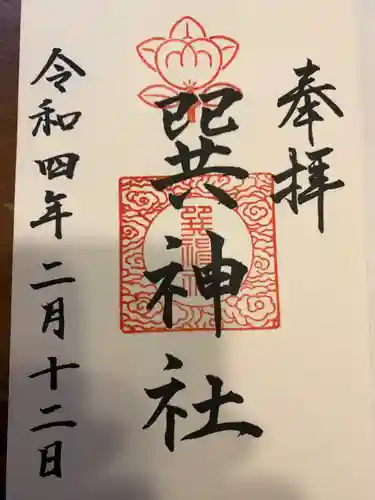 奉拝
巽神社
巽神社
令和四年二月十二日